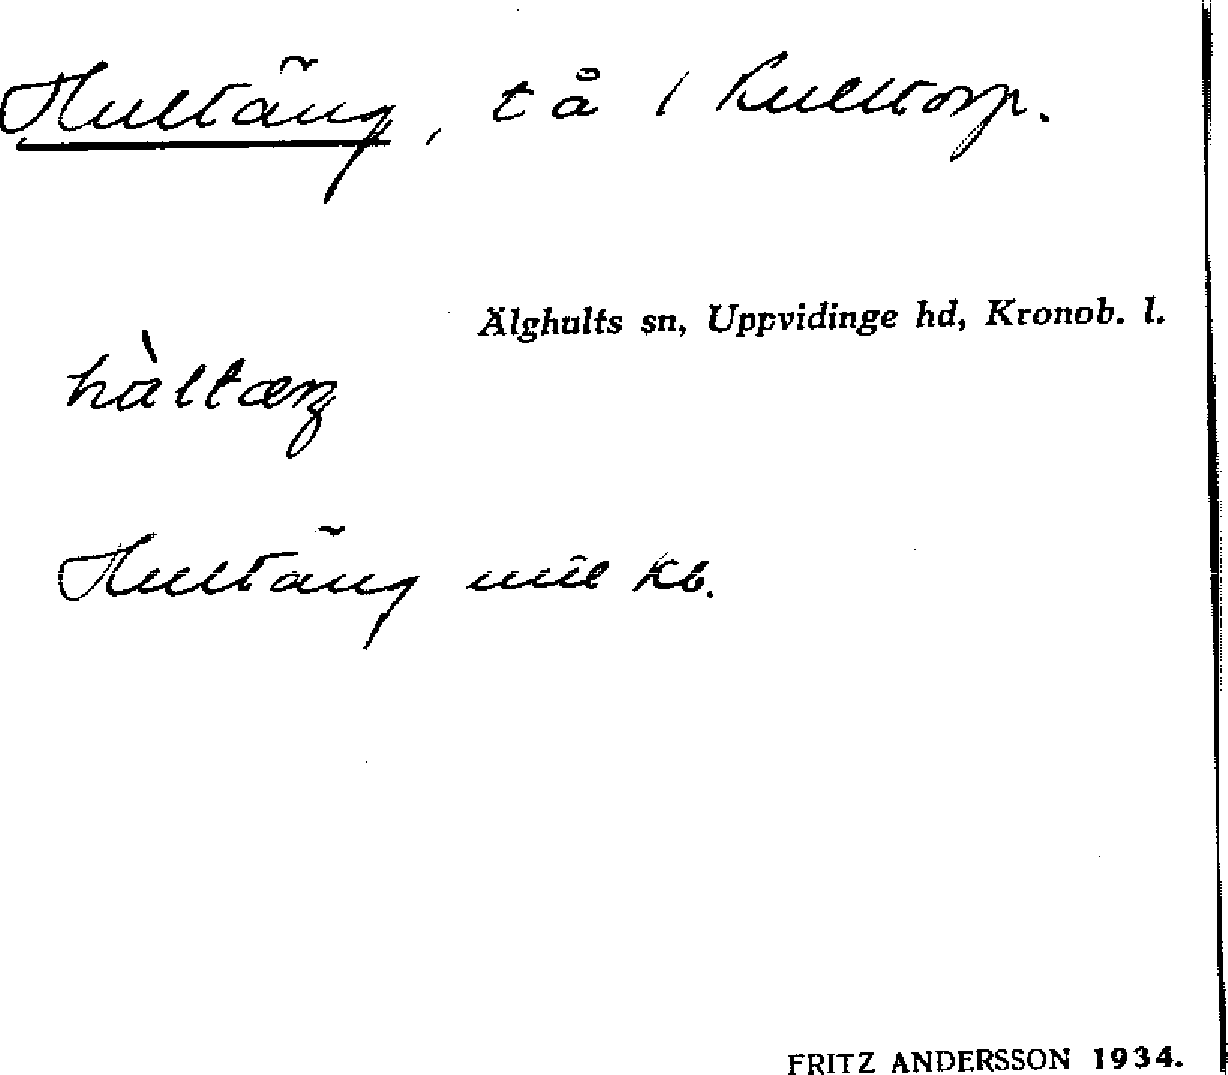 Hultäng, t å i Kulltorp.
Älghults sn, Uppvidinge hd, Kronob. l.
hàltæŋ
Hultäng mtl Kb.
FRITZ ANDERSSON 1934.